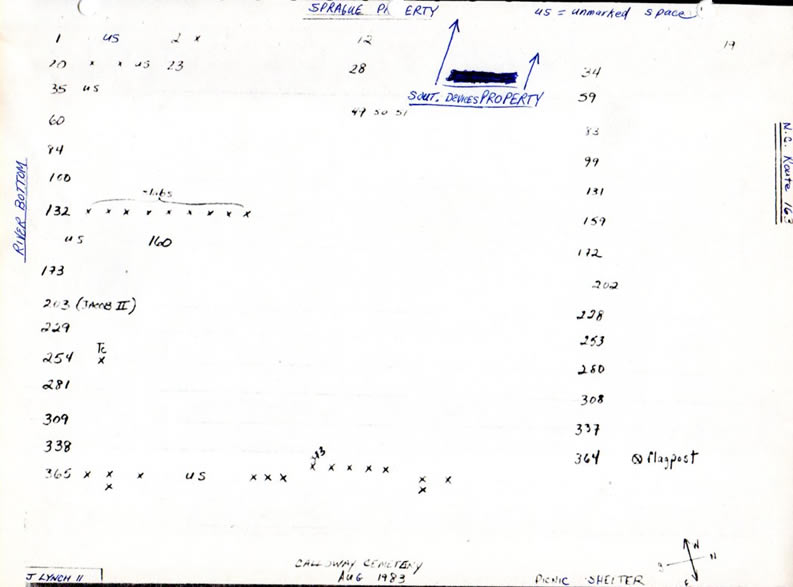 SPRAGUE PR ERTY
us = unmarked space
1 us 2 x 12 19
20 x x us 23 28 34
SOUT. DEVICES PROPERTY
35 us 59
60 49 50 51 83
84 99
N.C. Route 163
100 131
RIVER BOTTOM
132 x x x x x x x x x 159
us 160 172
173 202
203 (JACOB II) 228
229 253
Tc
254 x 280
281 308
309 337
338 364 ⊗ flagpost
365 x x x us x x x x x x x x x x
x x
CALLOWAY CEMETERY
AUG 1983
J LYNCH II
PICNIC SHELTER
N